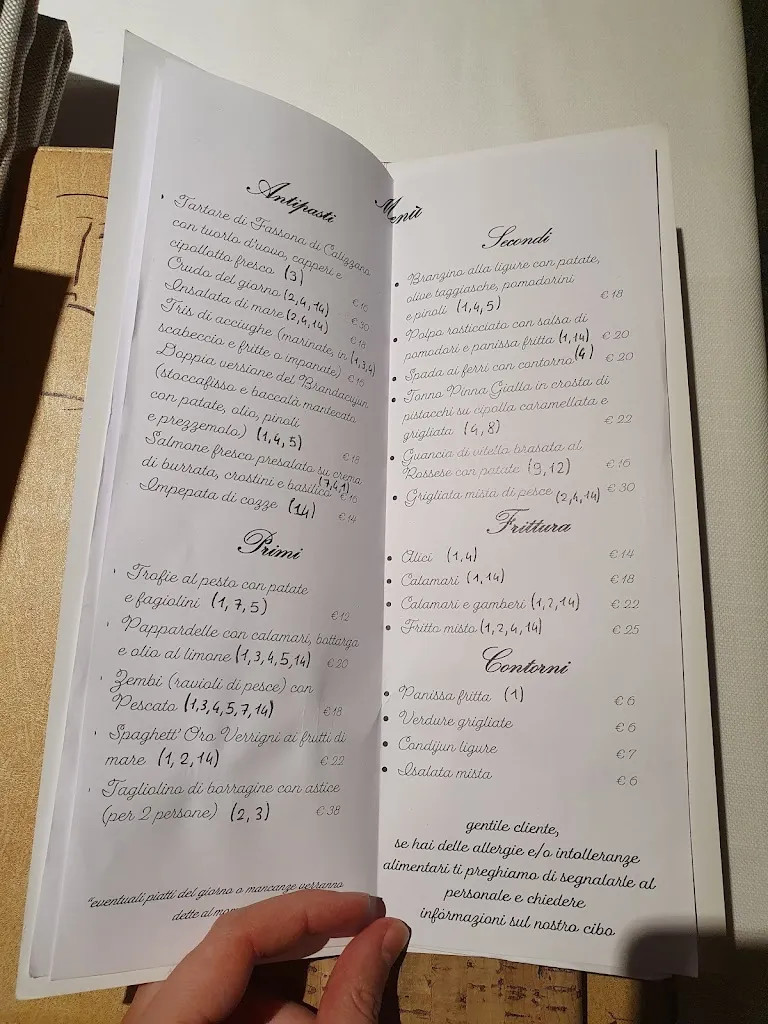 Antipasti
Tartare di Fassona di Calizzano
con tuorlo d'uovo, capperi e
cipollotto fresco (3) € 16
Crudo del giorno (2,4,14) € 30
Insalata di mare (2,4,14) € 18
Tris di acciughe (marinate, in (1,3,4)
scabeccio e fritte o impanate) € 16
Doppia versione del Brandacujun
(stoccafisso e baccalà mantecato
con patate, olio, pinoli
e prezzemolo) (1,4,5) € 18
Salmone fresco presalato su crema
di burrata, crostini e basilico (7,4,1) € 16
Impepata di cozze (14) € 14
Primi
Trofie al pesto con patate
e fagiolini (1,7,5) € 12
Pappardelle con calamari, bottarga
e olio al limone (1,3,4,5,14) € 20
Zembi (ravioli di pesce) con
Pescato (1,3,4,5,7,14) € 18
Spaghett' Oro Verrigni ai frutti di
mare (1,2,14) € 22
Tagliolino di borragine con astice
(per 2 persone) (2,3) € 38
*eventuali piatti del giorno o mancanze verranno
dette al mom
Menù
Secondi
Branzino alla ligure con patate,
olive taggiasche, pomodorini
e pinoli (1,4,5) € 18
Polpo rosticciato con salsa di
pomodori e panissa fritta (1,14) € 20
Spada ai ferri con contorno (4) € 20
Tonno Pinna Gialla in crosta di
pistacchi su cipolla caramellata e
grigliata (4,8) € 22
Guancia di vitello brasata al
Rossese con patate (9,12) € 16
Grigliata mista di pesce (2,4,14) € 30
Frittura
Alici (1,4) € 14
Calamari (1,14) € 18
Calamari e gamberi (1,2,14) € 22
Fritto misto (1,2,4,14) € 25
Contorni
Panissa fritta (1) € 6
Verdure grigliate € 6
Condijun ligure € 7
Isalata mista € 6
gentile cliente,
se hai delle allergie e/o intolleranze
alimentari ti preghiamo di segnalarle al
personale e chiedere
informazioni sul nostro cibo